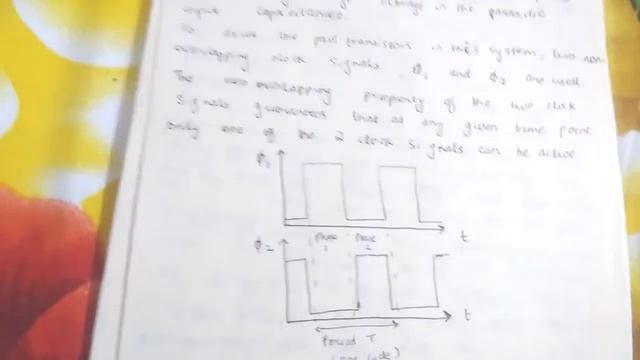 input capacitances.
To drive the pass transistors in this system, two non
overlapping clock signals Φ1 and Φ2 are used.
The non overlapping property of the two clock
signals guarantees that at any given time point
only one of the 2 clock signals can be active
Φ1
t
Φ2
Phase 1
Phase 2
t
Period T